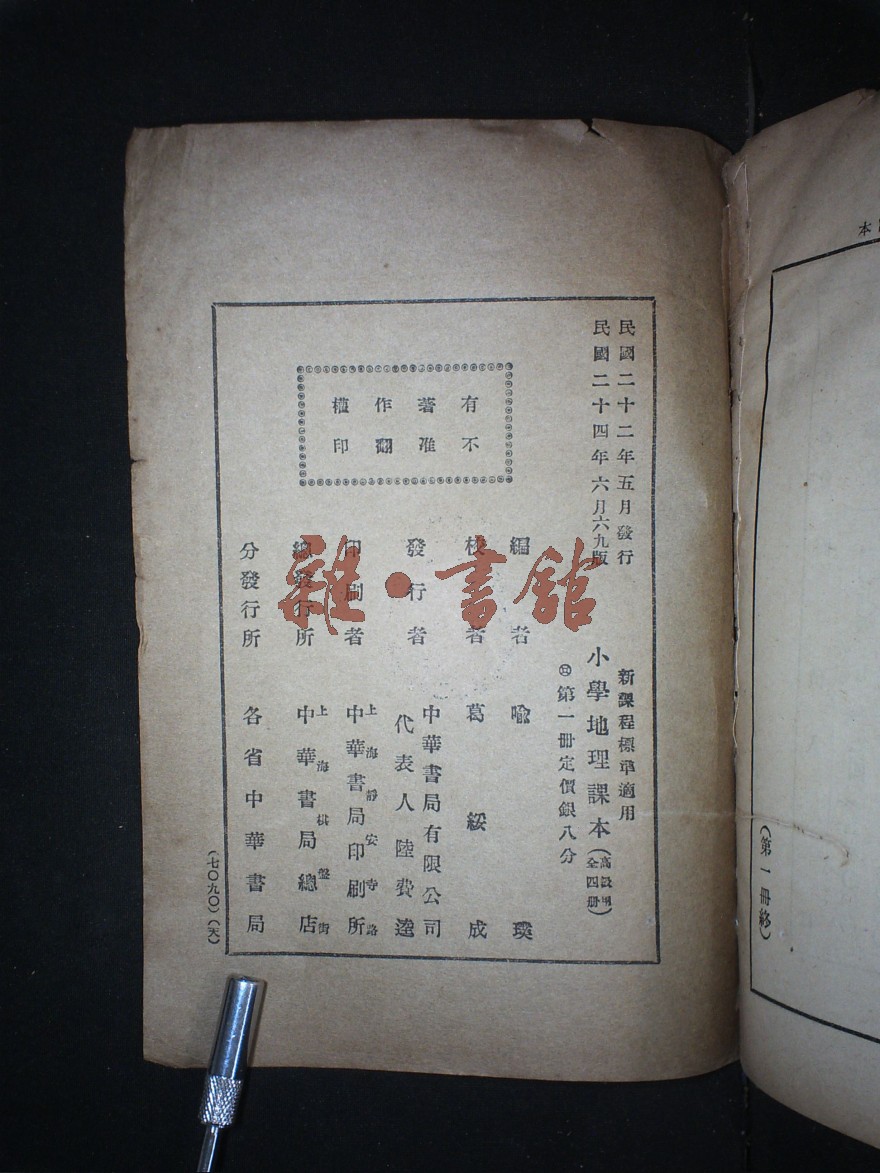 民國二十二年五月發行
民國二十四年六月六九版
新課程標準適用
小學地理課本(高級用全四冊)
第一冊定價銀八分
編者 喻璞
校者 葛綏成
發行者 中華書局有限公司
代表人陸費逵
印刷者 上海靜安寺路
中華書局印刷所
總發行所 上海棋盤街
中華書局總店
分發行所 各省中華書局
有著作權
不准翻印
(七〇九〇)(天)
雜·書館
(第一冊終)
本